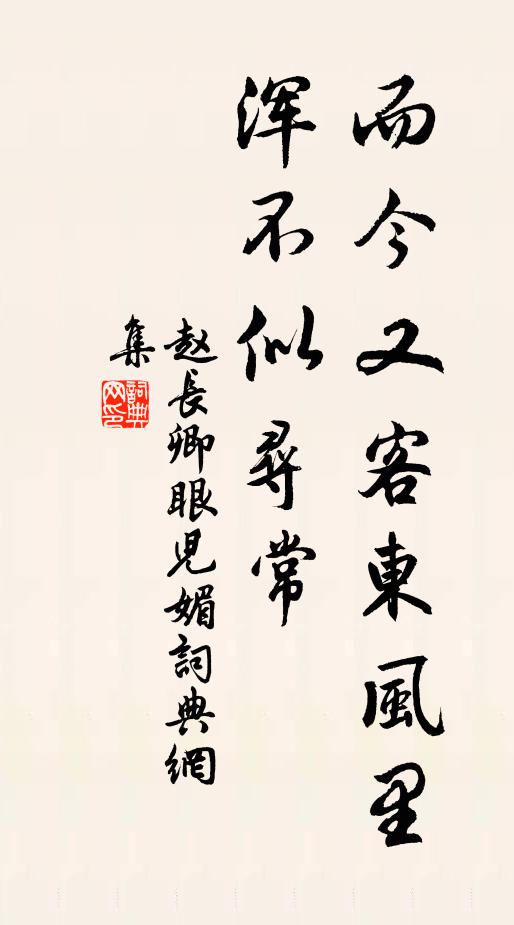 而今又客東風里
渾不似尋常
赵長卿眼児媚詞典網
集
詞典网印